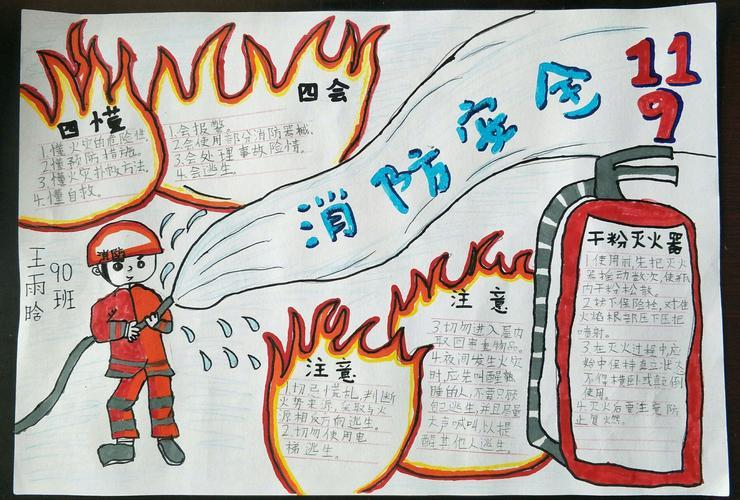 消防安全
119
四懂
1.懂火灾的危险性.
2.懂预防措施.
3.懂火灾扑救方法.
4.懂自救。
四会
1.会报警
2.会使用部分消防器械.
3.会处理事故险情。
4.会逃生。
消防
王雨晗
90班
注意
1.切忌慌乱,判断
火势来源,采取与火
源相反方向逃生。
2.切勿使用电
梯逃生。
注意
3.切勿进入屋内
取回贵重物品。
4.夜间发生火灾
时,应先叫醒熟
睡的人,不要只顾
自己逃生,并且尽量
大声喊叫,以提
醒其他人逃生。
干粉灭火器
1.使用前,先把灭火
器摇动数次,使瓶
内干粉松散.
2.拔下保险栓,对准
火焰根部压下压把
喷射。
3.在灭火过程中,应
始中保持直立状态
不得横卧或颠倒
使用。
4.灭火后要注意防
止复燃。